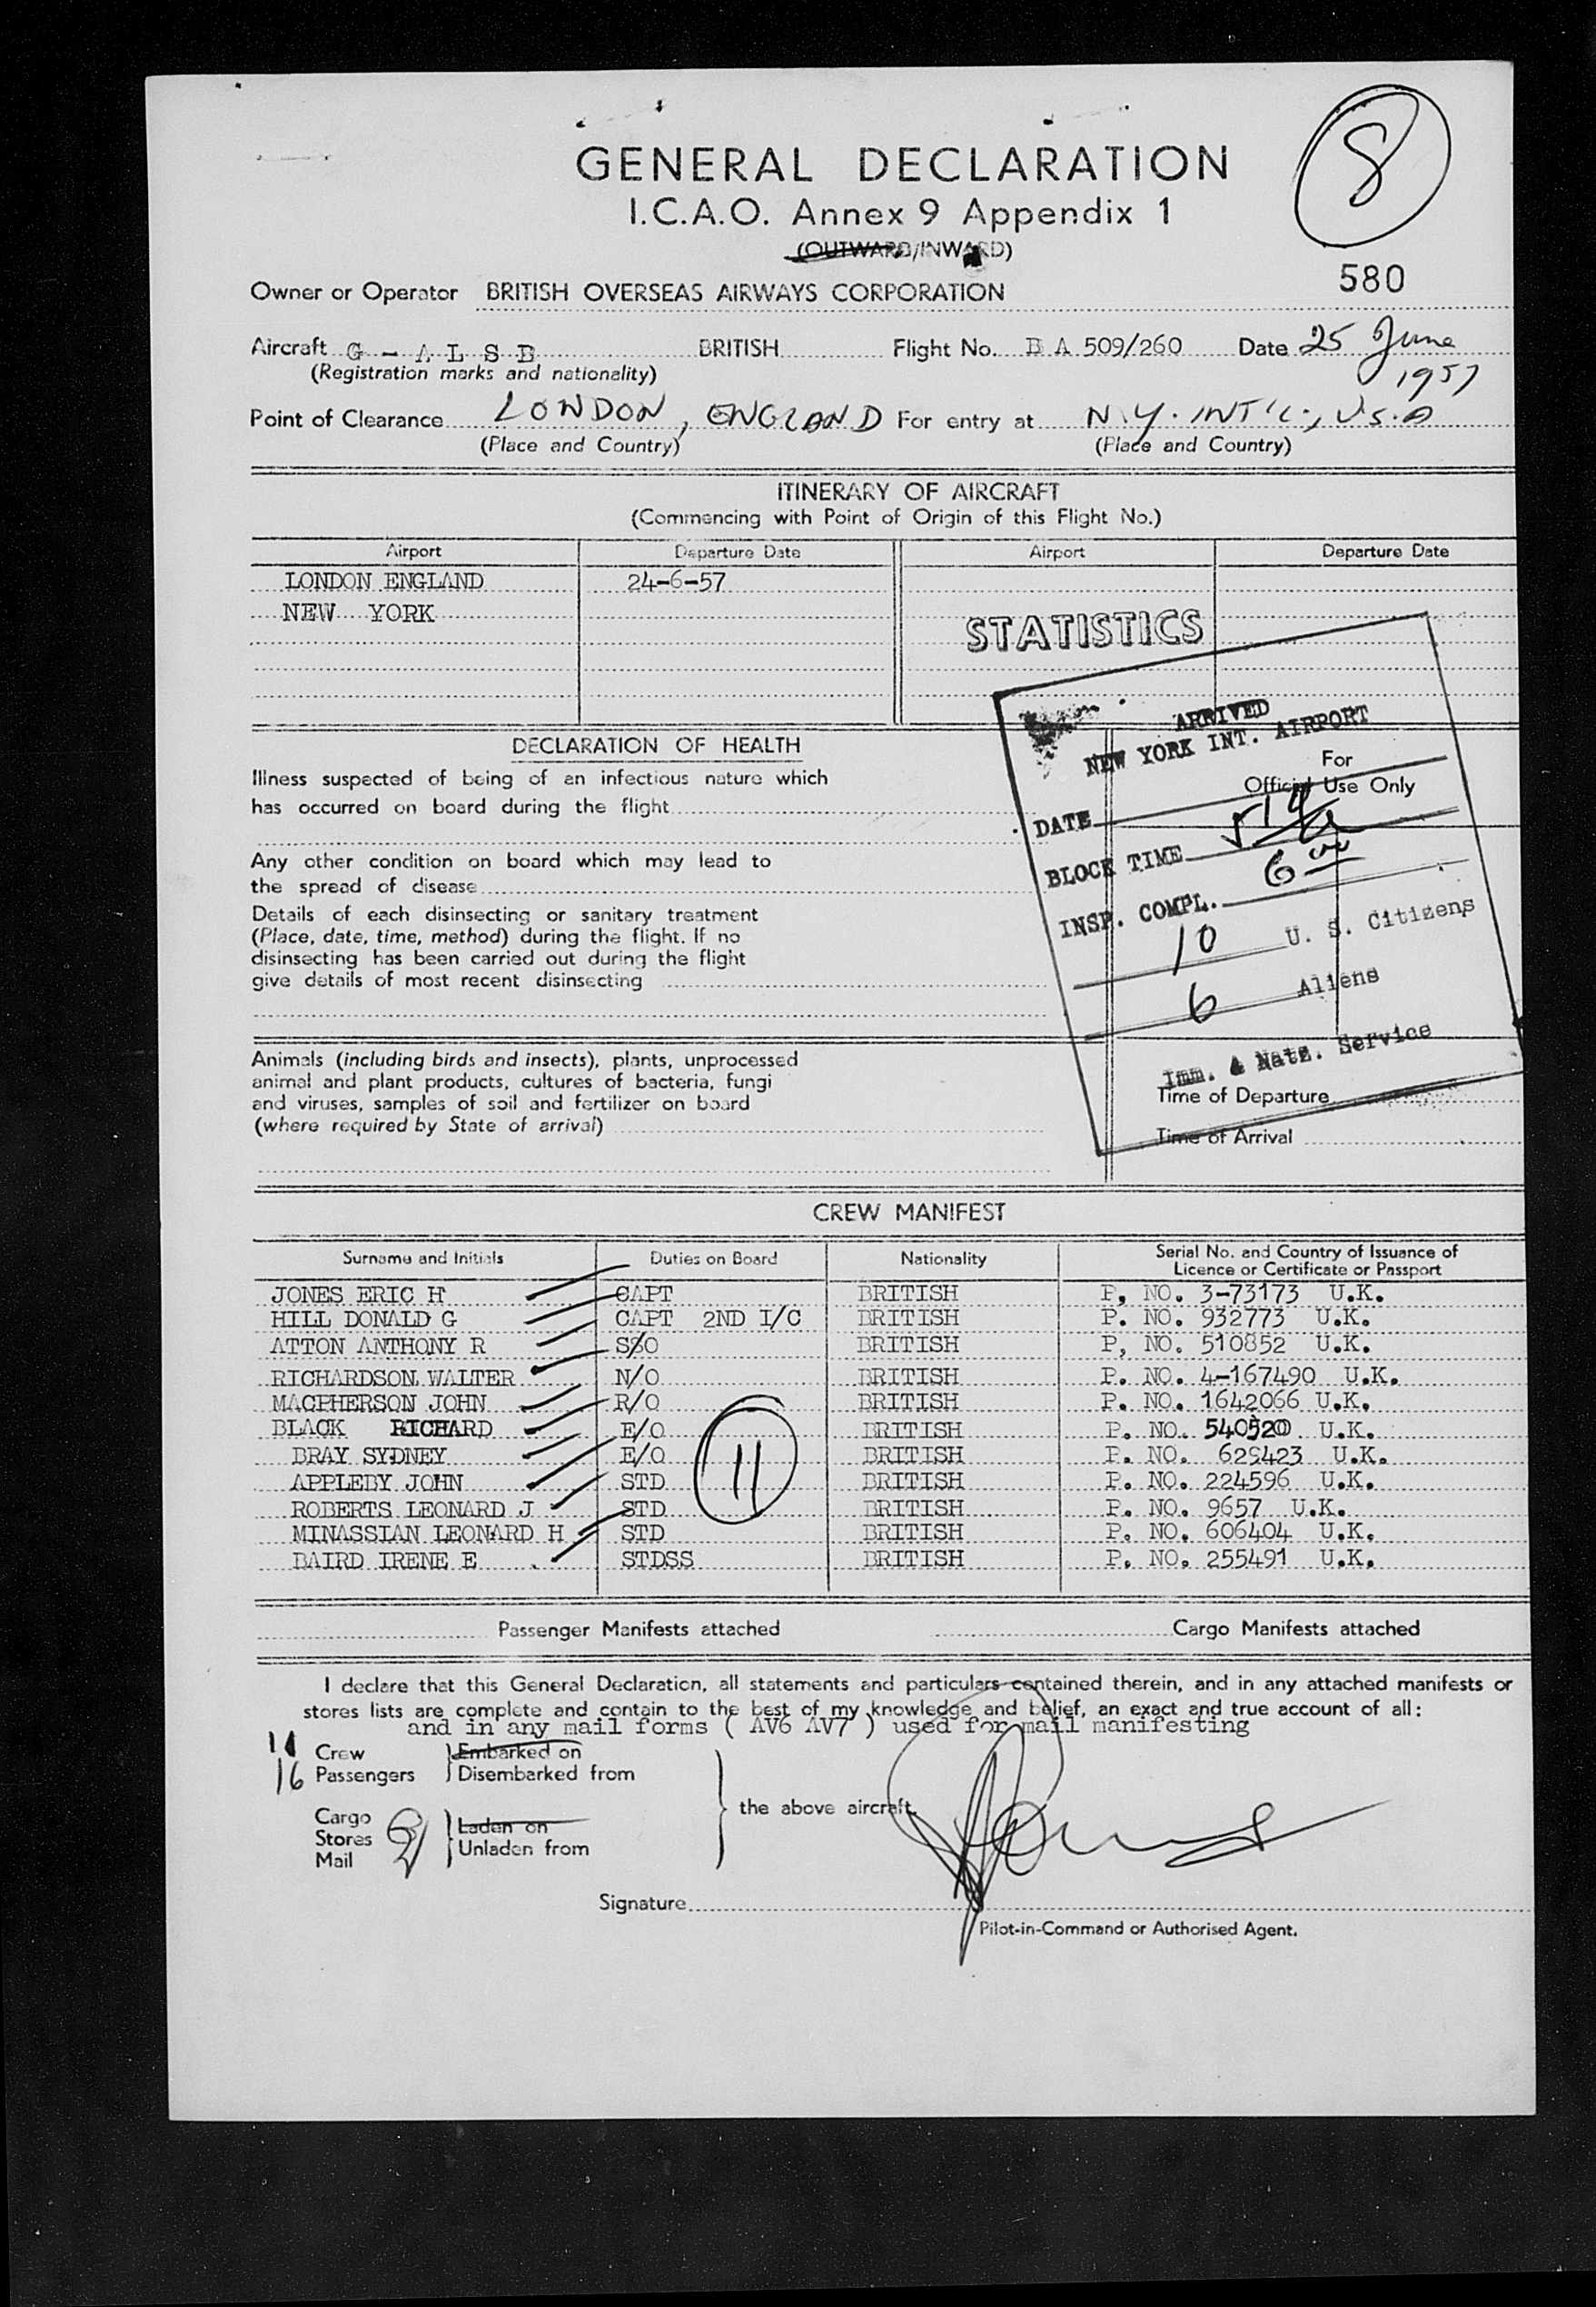 8
GENERAL DECLARATION
I.C.A.O. Annex 9 Appendix 1
(OUTWARD/INWARD)
580
Owner or Operator BRITISH OVERSEAS AIRWAYS CORPORATION
Aircraft G - A L S B BRITISH Flight No. B A 509/260 Date 25 June
(Registration marks and nationality) 1957
Point of Clearance LONDON, ENGLAND For entry at N.Y. INT'L., U.S.A
(Place and Country) (Place and Country)
ITINERARY OF AIRCRAFT
(Commencing with Point of Origin of this Flight No.)
Airport Departure Date Airport Departure Date
LONDON ENGLAND 24-6-57
NEW YORK
STATISTICS
ARRIVED
NEW YORK INT. AIRPORT
DATE
BLOCK TIME
INSP. COMPL. 6 00
10 U. S. Citizens
6 Aliens
Imm. & Natz. Service
DECLARATION OF HEALTH
For
Official Use Only
Illness suspected of being of an infectious nature which
has occurred on board during the flight
Any other condition on board which may lead to
the spread of disease
Details of each disinsecting or sanitary treatment
(Place, date, time, method) during the flight. If no
disinsecting has been carried out during the flight
give details of most recent disinsecting
Animals (including birds and insects), plants, unprocessed
animal and plant products, cultures of bacteria, fungi
and viruses, samples of soil and fertilizer on board
(where required by State of arrival)
Time of Departure
Time of Arrival
CREW MANIFEST
Surname and Initials Duties on Board Nationality Serial No. and Country of Issuance of
Licence or Certificate or Passport
JONES ERIC H CAPT BRITISH P, NO. 3-73173 U.K.
HILL DONALD G CAPT 2ND I/C BRITISH P. NO. 932773 U.K.
ATTON ANTHONY R S/O BRITISH P, NO. 510852 U.K.
RICHARDSON WALTER N/O BRITISH P. NO. 4-167490 U.K.
MACPHERSON JOHN R/O BRITISH P. NO. 1642066 U.K.
BLACK RICHARD E/O BRITISH P. NO. 540520 U.K.
BRAY SYDNEY E/O BRITISH P. NO. 629423 U.K.
APPLEBY JOHN STD BRITISH P. NO. 224596 U.K.
ROBERTS LEONARD J STD BRITISH P. NO. 9657 U.K.
MINASSIAN LEONARD H STD BRITISH P. NO. 606404 U.K.
BAIRD IRENE E STDSS BRITISH P. NO. 255491 U.K.
11
Passenger Manifests attached Cargo Manifests attached
I declare that this General Declaration, all statements and particulars contained therein, and in any attached manifests or
stores lists are complete and contain to the best of my knowledge and belief, an exact and true account of all:
and in any mail forms ( AV6 AV7 ) used for mail manifesting
11 Crew Embarked on
16 Passengers Disembarked from
the above aircraft.
Cargo Laden on
Stores Unladen from
Mail
Signature
Pilot-in-Command or Authorised Agent.